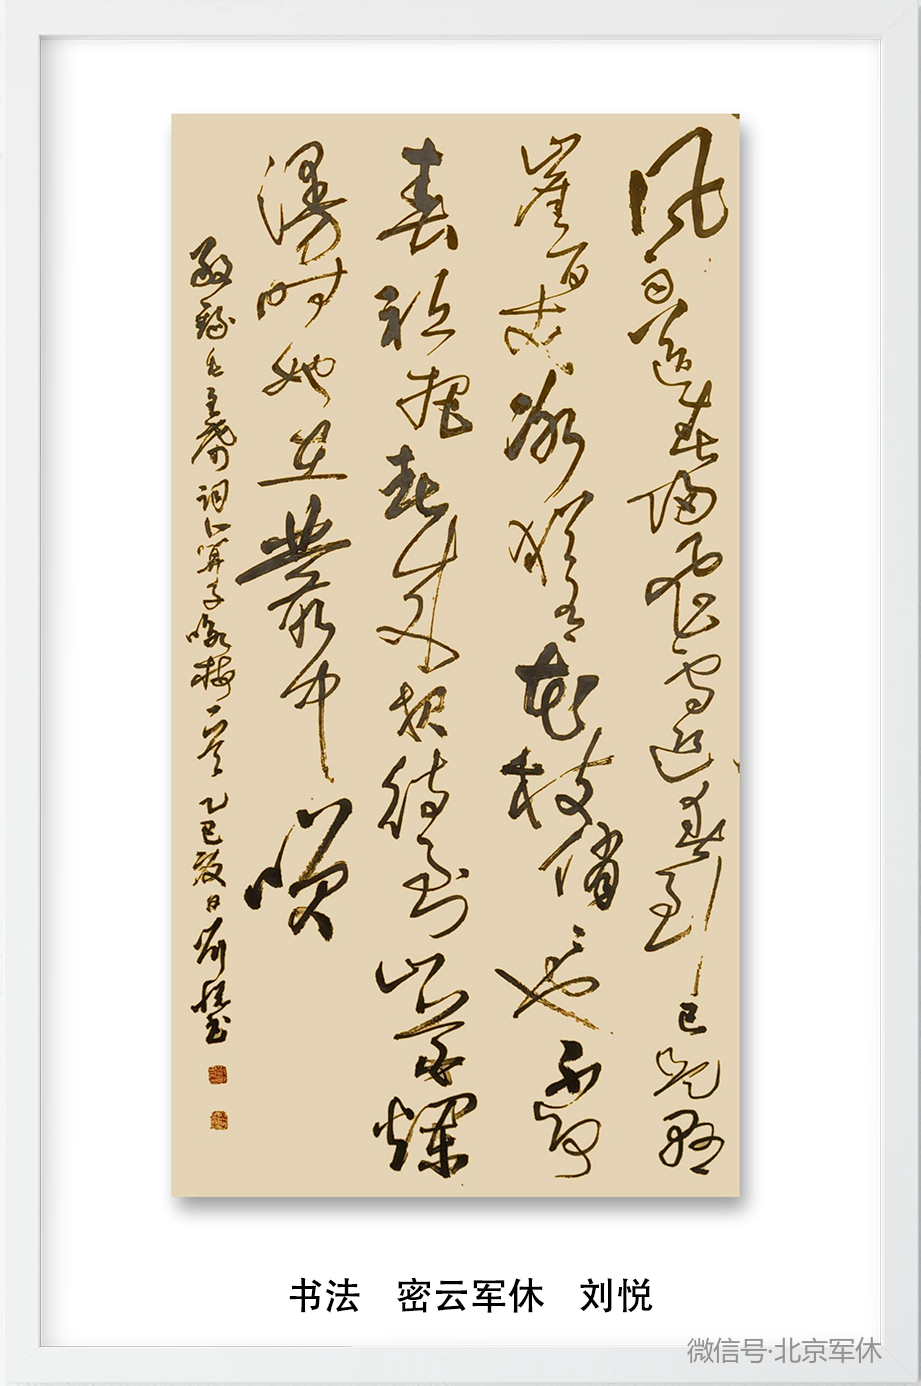 风雨送春归飞雪迎春到已是悬
崖百丈冰犹有花枝俏〻也不争
春祗把春来报待到山花爛
漫时她在叢中咲
敬录毛主席词卜算子咏梅一首 乙巳夏日刘悦书
书法 密云军休 刘悦
微信号·北京军休